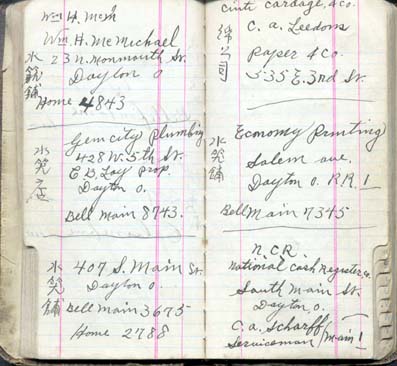 Wm H. McM
Wm. H. McMichael
23 N. Monmouth St.
Dayton O
Home 4843
水
舖
Gem City Plumbing
428 W. 5th St.
E B Loy Prop.
Dayton O.
Bell Main 8743.
水
407 S. Main St
Dayton O.
Bell Main 3675
Home 2788
水
舖
cinti cordage, & co.
C. A. Leedoms
Paper & Co.
535 E. 3rd St.
公
司
Economy Printing
Salem ave.
Dayton O. R.R. 1
Bell Main 7345
水
舖
N.C.R.
National Cash Register Co.
South Main St.
Dayton O.
C. A. Scharff / Main 1
Serviceman